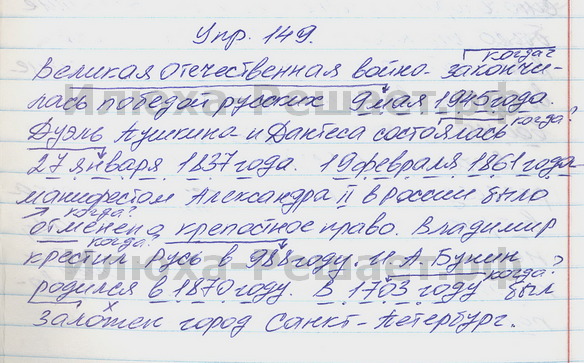 Упр. 149.
когда?
Великая отечественная война закончи-
лась победой русских 9 мая 1945 года.
когда?
Дуэль Пушкина и Дантеса состоялась
27 января 1837 года. 19 февраля 1861 года
манифестом Александра II в России было
когда?
отменено крепостное право. Владимир
когда?
крестил Русь в 988 году. И. А. Бунин
когда?
родился в 1870 году. В 1703 году был
заложен город Санкт-Петербург.
Илюха-Решает.рф
Илюха-Решает.рф